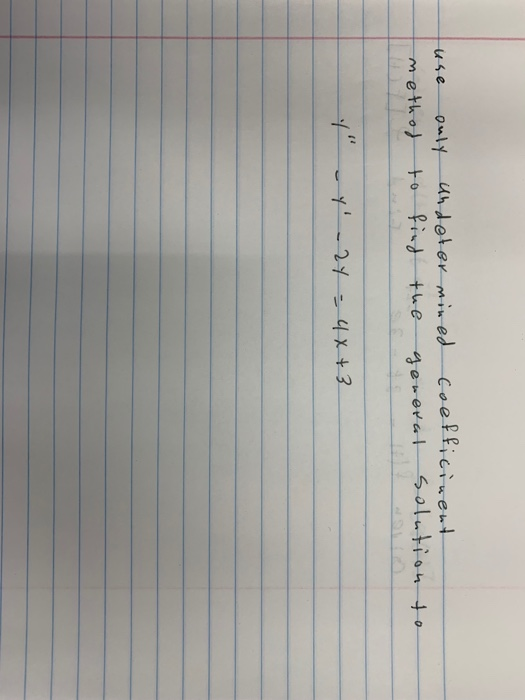 use only undetermined coefficinent
method to find the general solution to
y'' - y' - 2y = 4x + 3